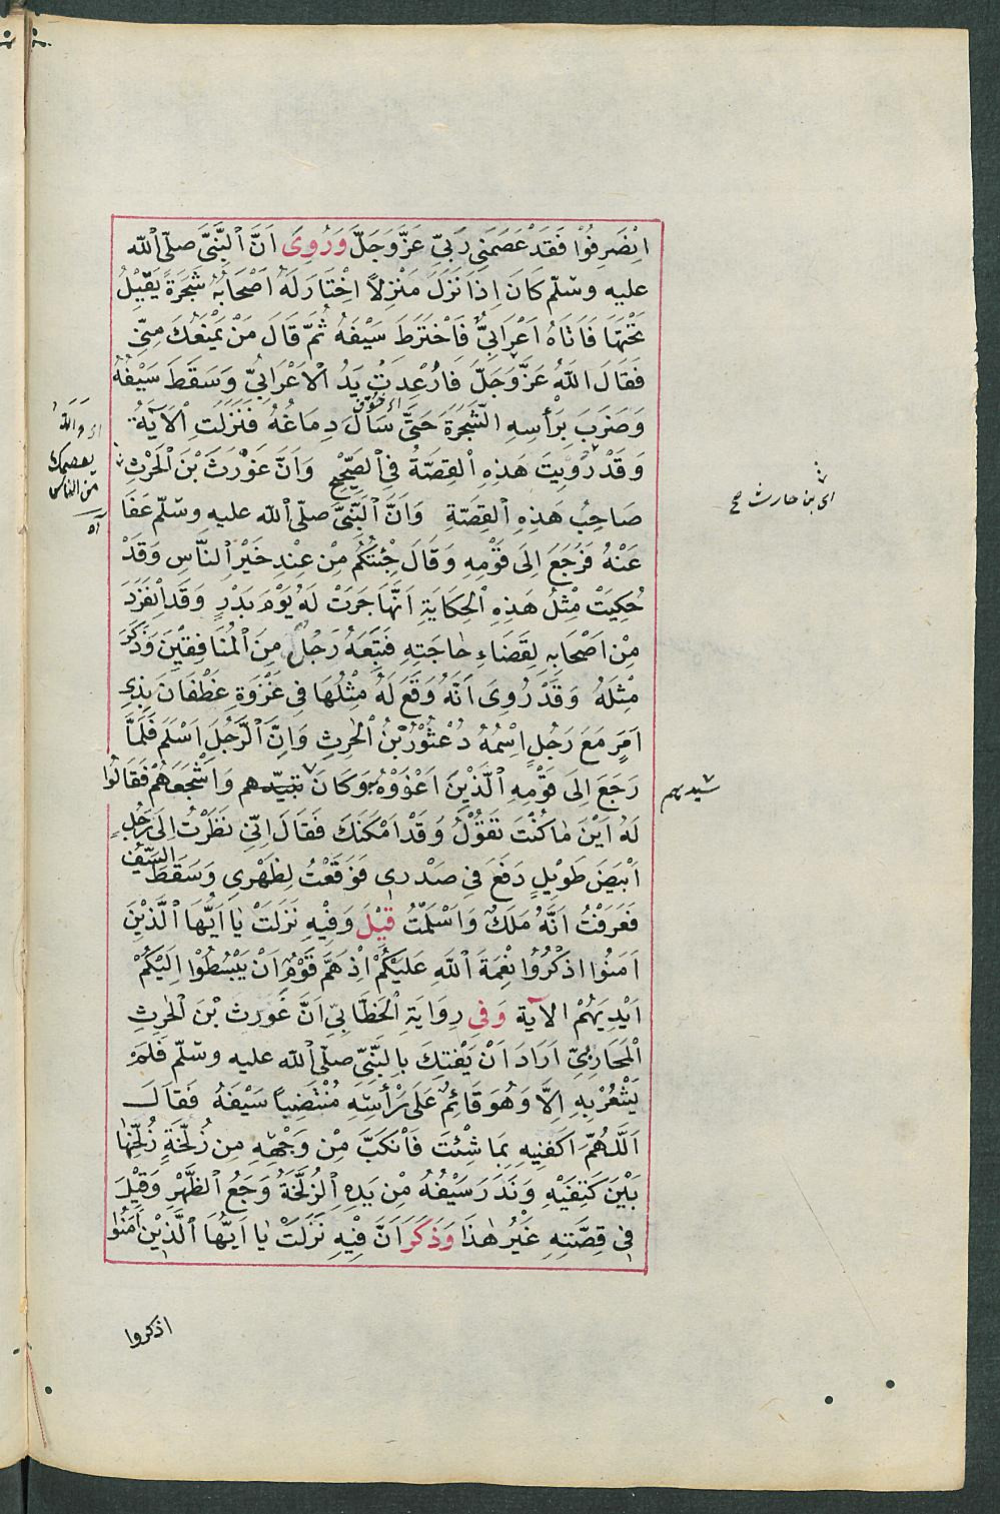 اِنْصَرِفُوْا فَقَدْ عَصَمَنِى رَبِّى عَزَّ وَجَلَّ وَرُوِىَ اَنَّ النَّبِىَّ صلّى الله
عليه وسلّم كَانَ اِذَا نَزَلَ مَنْزِلاً اخْتَارَ لَهُ اَصْحَابُهُ شَجَرَةً يَقِيْلُ
تَحْتَهَا فَاَتَاهُ اَعْرَابِىٌّ فَاخْتَرَطَ سَيْفَهُ ثُمَّ قَالَ مَنْ يَمْنَعُكَ مِنِّى
فَقَالَ اللّٰهُ عَزَّ وَجَلَّ فَارُعِدَتْ يَدُ الْاَعْرَابِىِّ وَسَقَطَ سَيْفُهُ
وَضَرَبَ بِرَأْسِهِ الشَّجَرَةَ حَتَّى سَالَ دِمَاغُهُ فَنَزَلَتِ الْاٰيَةُ
وَقَدْ رُوِيَتْ هَذِهِ الْقِصَّةُ فِى الصَّحِيْحِ وَاَنَّ غَوْرَثَ بْنَ الْحٰرِثِ
صَاحِبُ هَذِهِ الْقِصَّةِ وَاَنَّ النَّبِىَّ صلّى الله عليه وسلّم عَفَا
عَنْهُ فَرَجَعَ اِلَى قَوْمِهِ وَقَالَ جِئْتُكُمْ مِنْ عِنْدِ خَيْرِ النَّاسِ وَقَدْ
حُكِيَتْ مِثْلُ هَذِهِ الْحِكَايَةِ اَنَّهَا جَرَتْ لَهُ يَوْمَ بَدْرٍ وَقَدِ انْفَرَدَ
مِنْ اَصْحَابِهِ لِقَضَاءِ حٰاجَتِهِ فَتَبِعَهُ رَجُلٌ مِنَ الْمُنَافِقِيْنَ وَذَكَرَ
مِثْلَهُ وَقَدْ رُوِىَ اَنَّهُ وَقَعَ لَهُ مِثْلُهَا فِى غَزْوَةِ غَطْفَانَ بِذِى
اَمَرٍ مَعَ رَجُلٍ اِسْمُهُ دُعْثُوْرُ بْنُ الْحٰرِثِ وَاِنَّ الرَّجُلَ اَسْلَمَ فَلَمَّا
رَجَعَ اِلَى قَوْمِهِ الَّذِيْنَ اَغْوَوْهُ وَكَانَ سيّدهم وَاَشْجَعَهُمْ فَقَالُوا
لَهُ اَيْنَ مٰا كُنْتَ تَقُوْلُ وَقَدْ اَمْكَنَكَ فَقَالَ اِنِّى نَظَرْتُ اِلَى رَجُلٍ
اَبْيَضَ طَوِيْلٍ دَفَعَ فِى صَدْرِى فَوَقَعْتُ لِظَهْرِى وَسَقَطَ السَّيْفُ
فَعَرَفْتُ اَنَّهُ مَلَكٌ وَاَسْلَمْتُ قِيْلَ وَفِيْهِ نَزَلَتْ يٰا اَيُّهَا الَّذِيْنَ
اٰمَنُوا اذْكُرُوْا نِعْمَةَ اللّٰهِ عَلَيْكُمْ اِذْ هَمَّ قَوْمٌ اَنْ يَبْسُطُوْا اِلَيْكُمْ
اَيْدِيَهُمْ الاٰية وَفِى رِوَايَةِ الْخَطَّابِىِّ اَنَّ غَوْرث بْنَ الْحٰرِثِ
الْمُحَارِبِىَّ اَرَادَ اَنْ يَفْتِكَ بِالنَّبِىِّ صلّى الله عليه وسلّم فَلَمْ
يَشْعُرْ بِهِ اِلَّا وَهُوَ قَائِمٌ عَلَى رَأْسِهِ مُنْتَضِياً سَيْفَهُ فَقَالَ
اَللّٰهُمَّ اكْفِنِيهِ بِمَا شِئْتَ فَانْكَبَّ مِنْ وَجْهِهِ مِن زُلَّخَةٍ زُلِّخَهٰا
بَيْنَ كَتِفَيْهِ وَنَدَرَ سَيْفُهُ مِنْ يَدِهِ الزُّلَّخَةُ وَجَعُ الظَّهْرِ وَقِيْلَ
فِى قِصَّتِهِ غَيْرُ هٰذَا وَذَكَرَ اَنَّ فِيْهِ نَزَلَتْ يٰا اَيُّهَا الَّذِيْنَ اٰمَنُوا
اذكروا
اى فوق
اى والله
يعصمك
من الناس
اى بن حارث صح
سيدهم